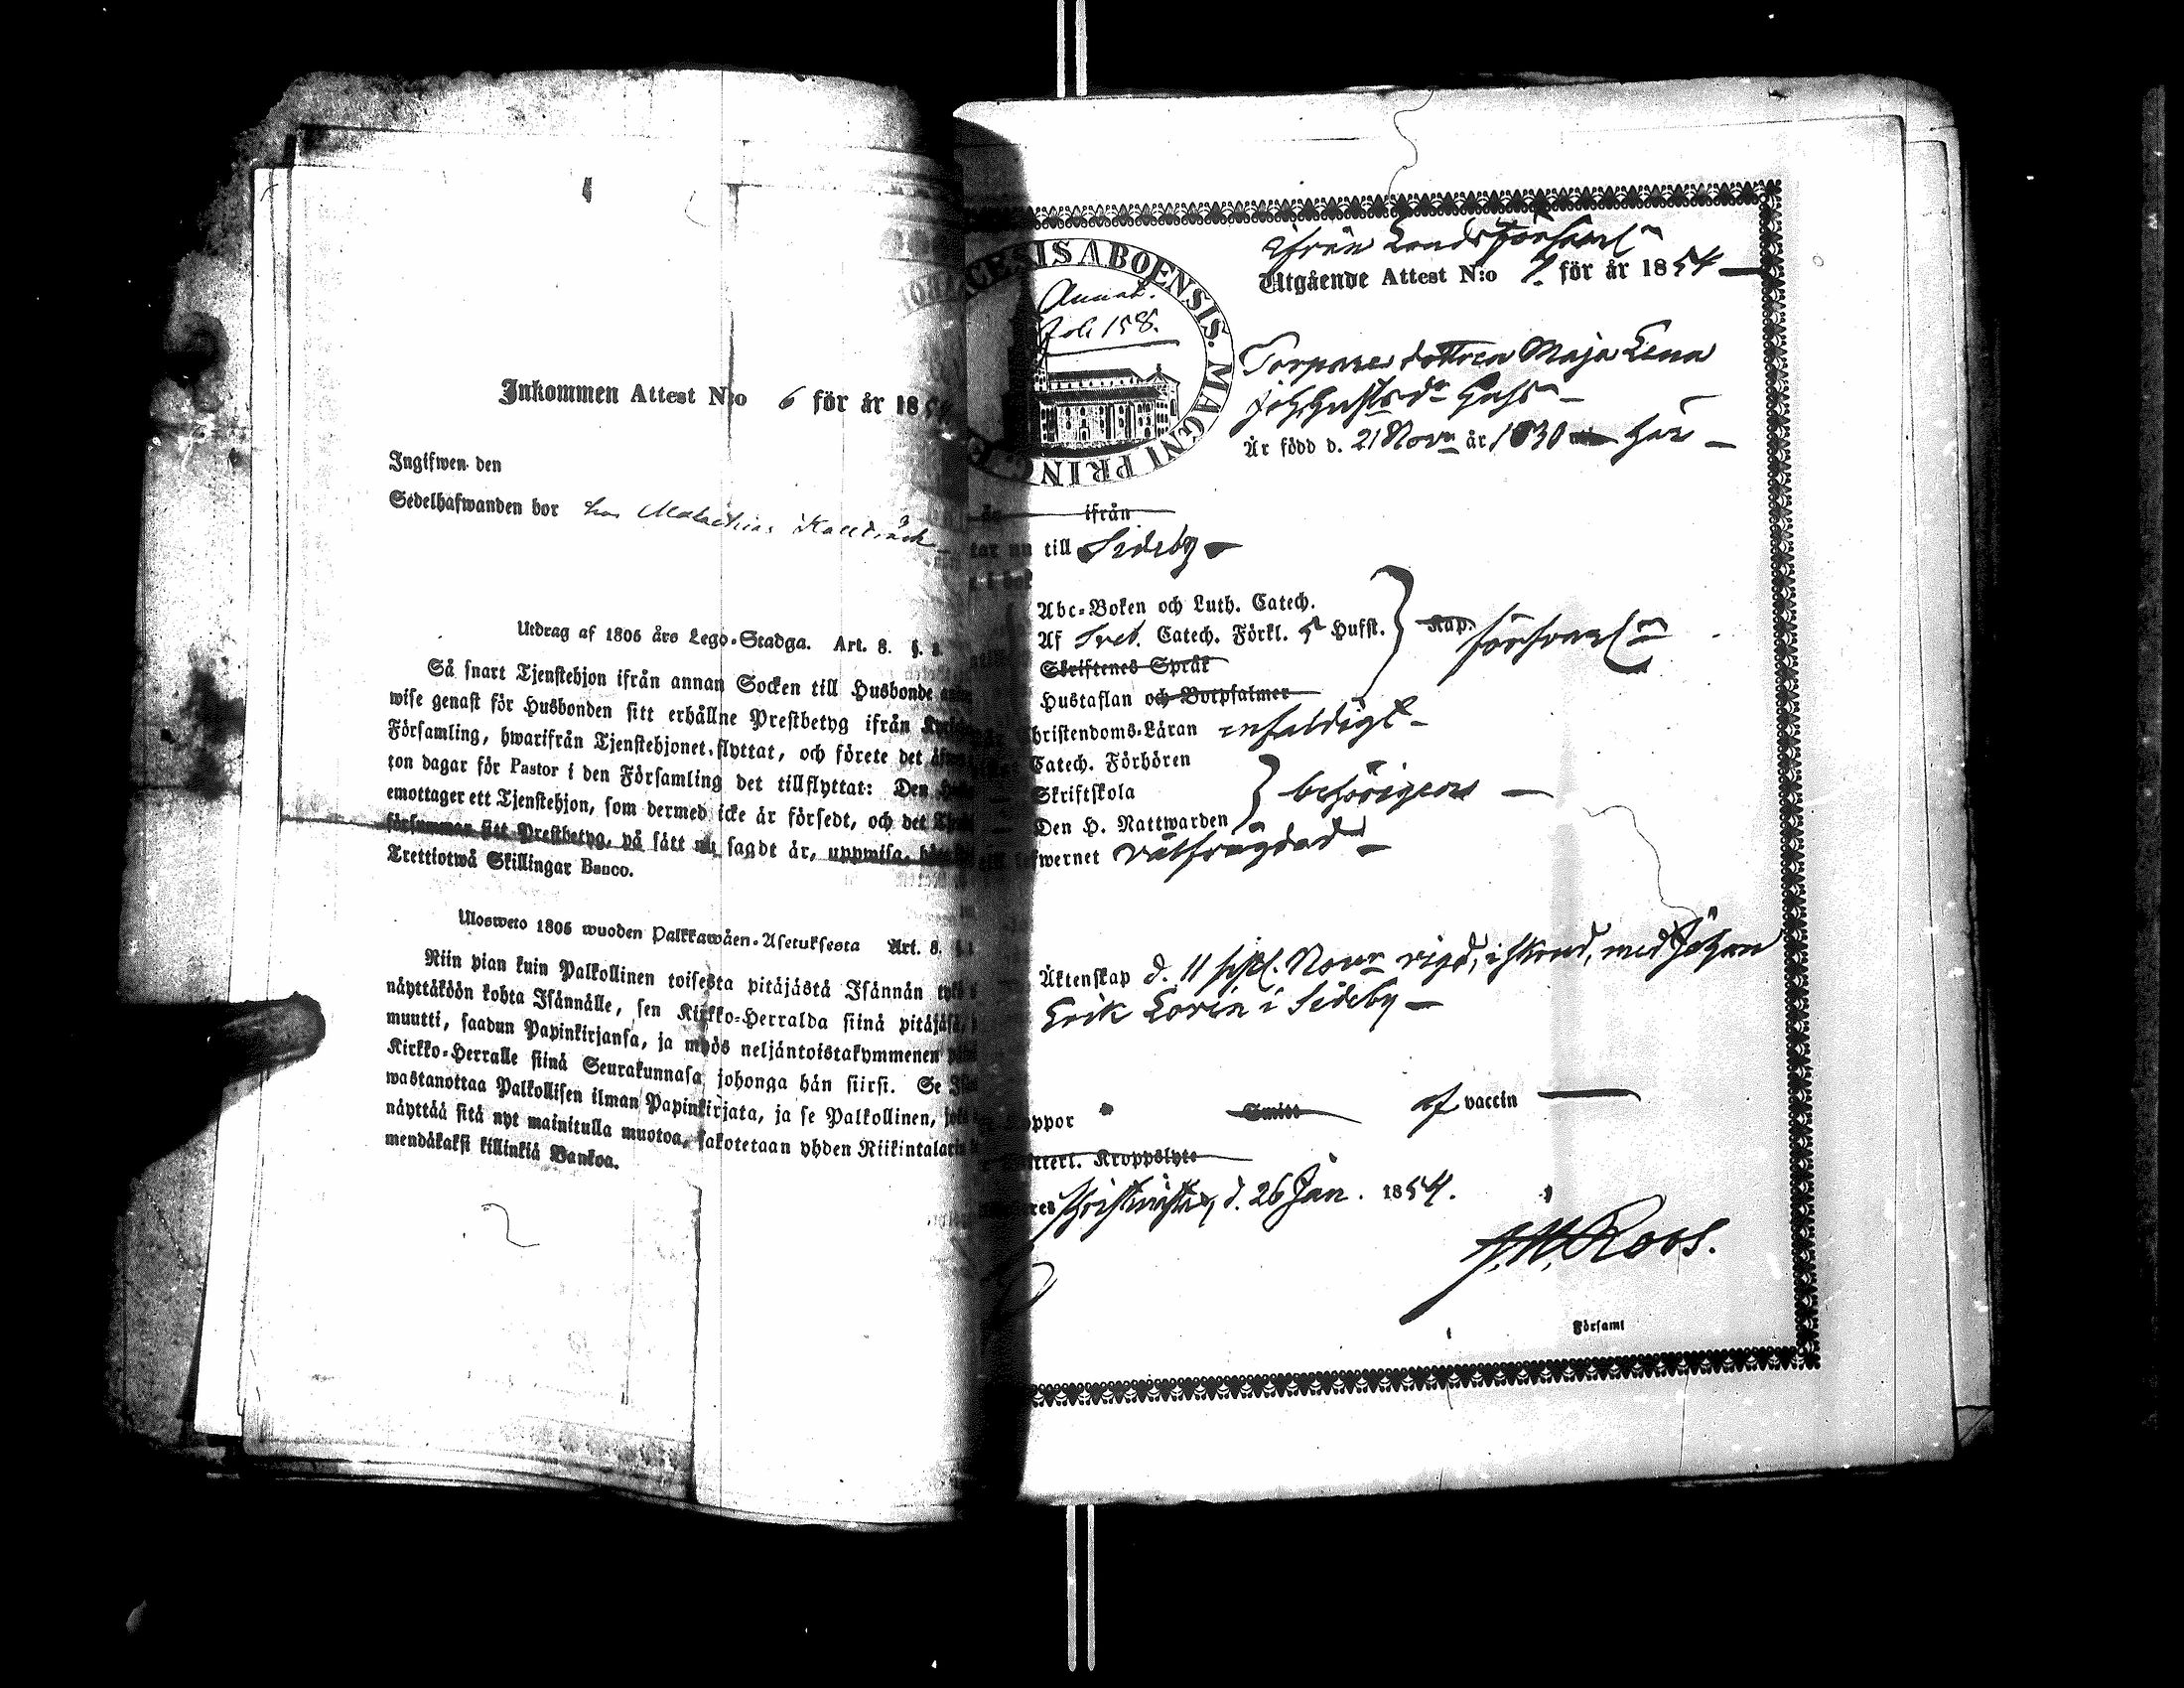 Inkommen Attest N:o 6 för år 185
Ingifwen den
Sedelhafwanden bor hos Malachias
Utdrag af 1805 års Lego-Stadga. Art. 8. §. 2
Så snart Tjenstehjon ifrån annan Socken till Husbonde
wise genast för Husbonden sitt erhållne Prestbetyg ifrån
Församling, hwarifrån Tjenstehjonet flyttat, och förete det
ton dagar för Pastor i den Församling det tillflyttat: Den
emottager ett Tjenstehjon, som dermed icke är försedt, och det
försummar sitt Prestbetyg, på sätt nu sagdt är, uppwisa,
Trettiotwå Skillingar Banco.
Ulosweto 1805 wuoden Palkkawäen-Asetuksesta Art. 8.
Niin pian kuin Palkollinen toisesta pitäjästä Isännän tykö
näyttäköön kohta Isännälle, sen Kirkko-Herralda siinä pitäjäsä,
muutti, saadun Papinkirjansa, ja myös neljäntoistakymmenen
Kirkko-Herralle siinä Seurakunnasa johonga hän siirsi. Se
wastanottaa Palkollisen ilman Papinkirjata, ja se Palkollinen,
näyttää sitä nyt mainitulla muotoa, sakotetaan yhden Riikintalarin
mendäkaksi killinkiä Bankoa.
ABOENSIS. MAGNI PRINC.
158.
ifrån Landsförsaml:n
Utgående Attest N:o för år 1854
Torpare dottren Maja Lena
Är född d. 21 Nov:r år 1830 här
ifrån
till Sideby
Abc-Boken och Luth. Catech.
Af Sveb. Catech. Förkl. Hufst. Kap. försvarl:n
Skriftenes Språk
Hustaflan och Botpsalmer
Christendoms-Läran enfaldigt
Catech. Förhören
Skriftskola behörigen
Den H. Nattwarden
wernet välfrägdad
Äktenskap d. 11 sistl. Nov:r vigd, i stånd, med Johan
Erik Lorin i Sideby
Koppor Smitt af vaccin
Kroppslyte
d. 26 Jan. 1854.
Roos.
Församl